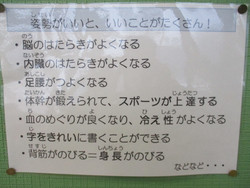 姿勢がいいと、いいことがたくさん！
・脳のはたらきがよくなる
・内臓のはたらきがよくなる
・足腰がつよくなる
・体幹が鍛えられて、スポーツが上達する
・血のめぐりが良くなり、冷え性がよくなる
・字をきれいに書くことができる
・背筋がのびる＝身長がのびる
などなど・・・